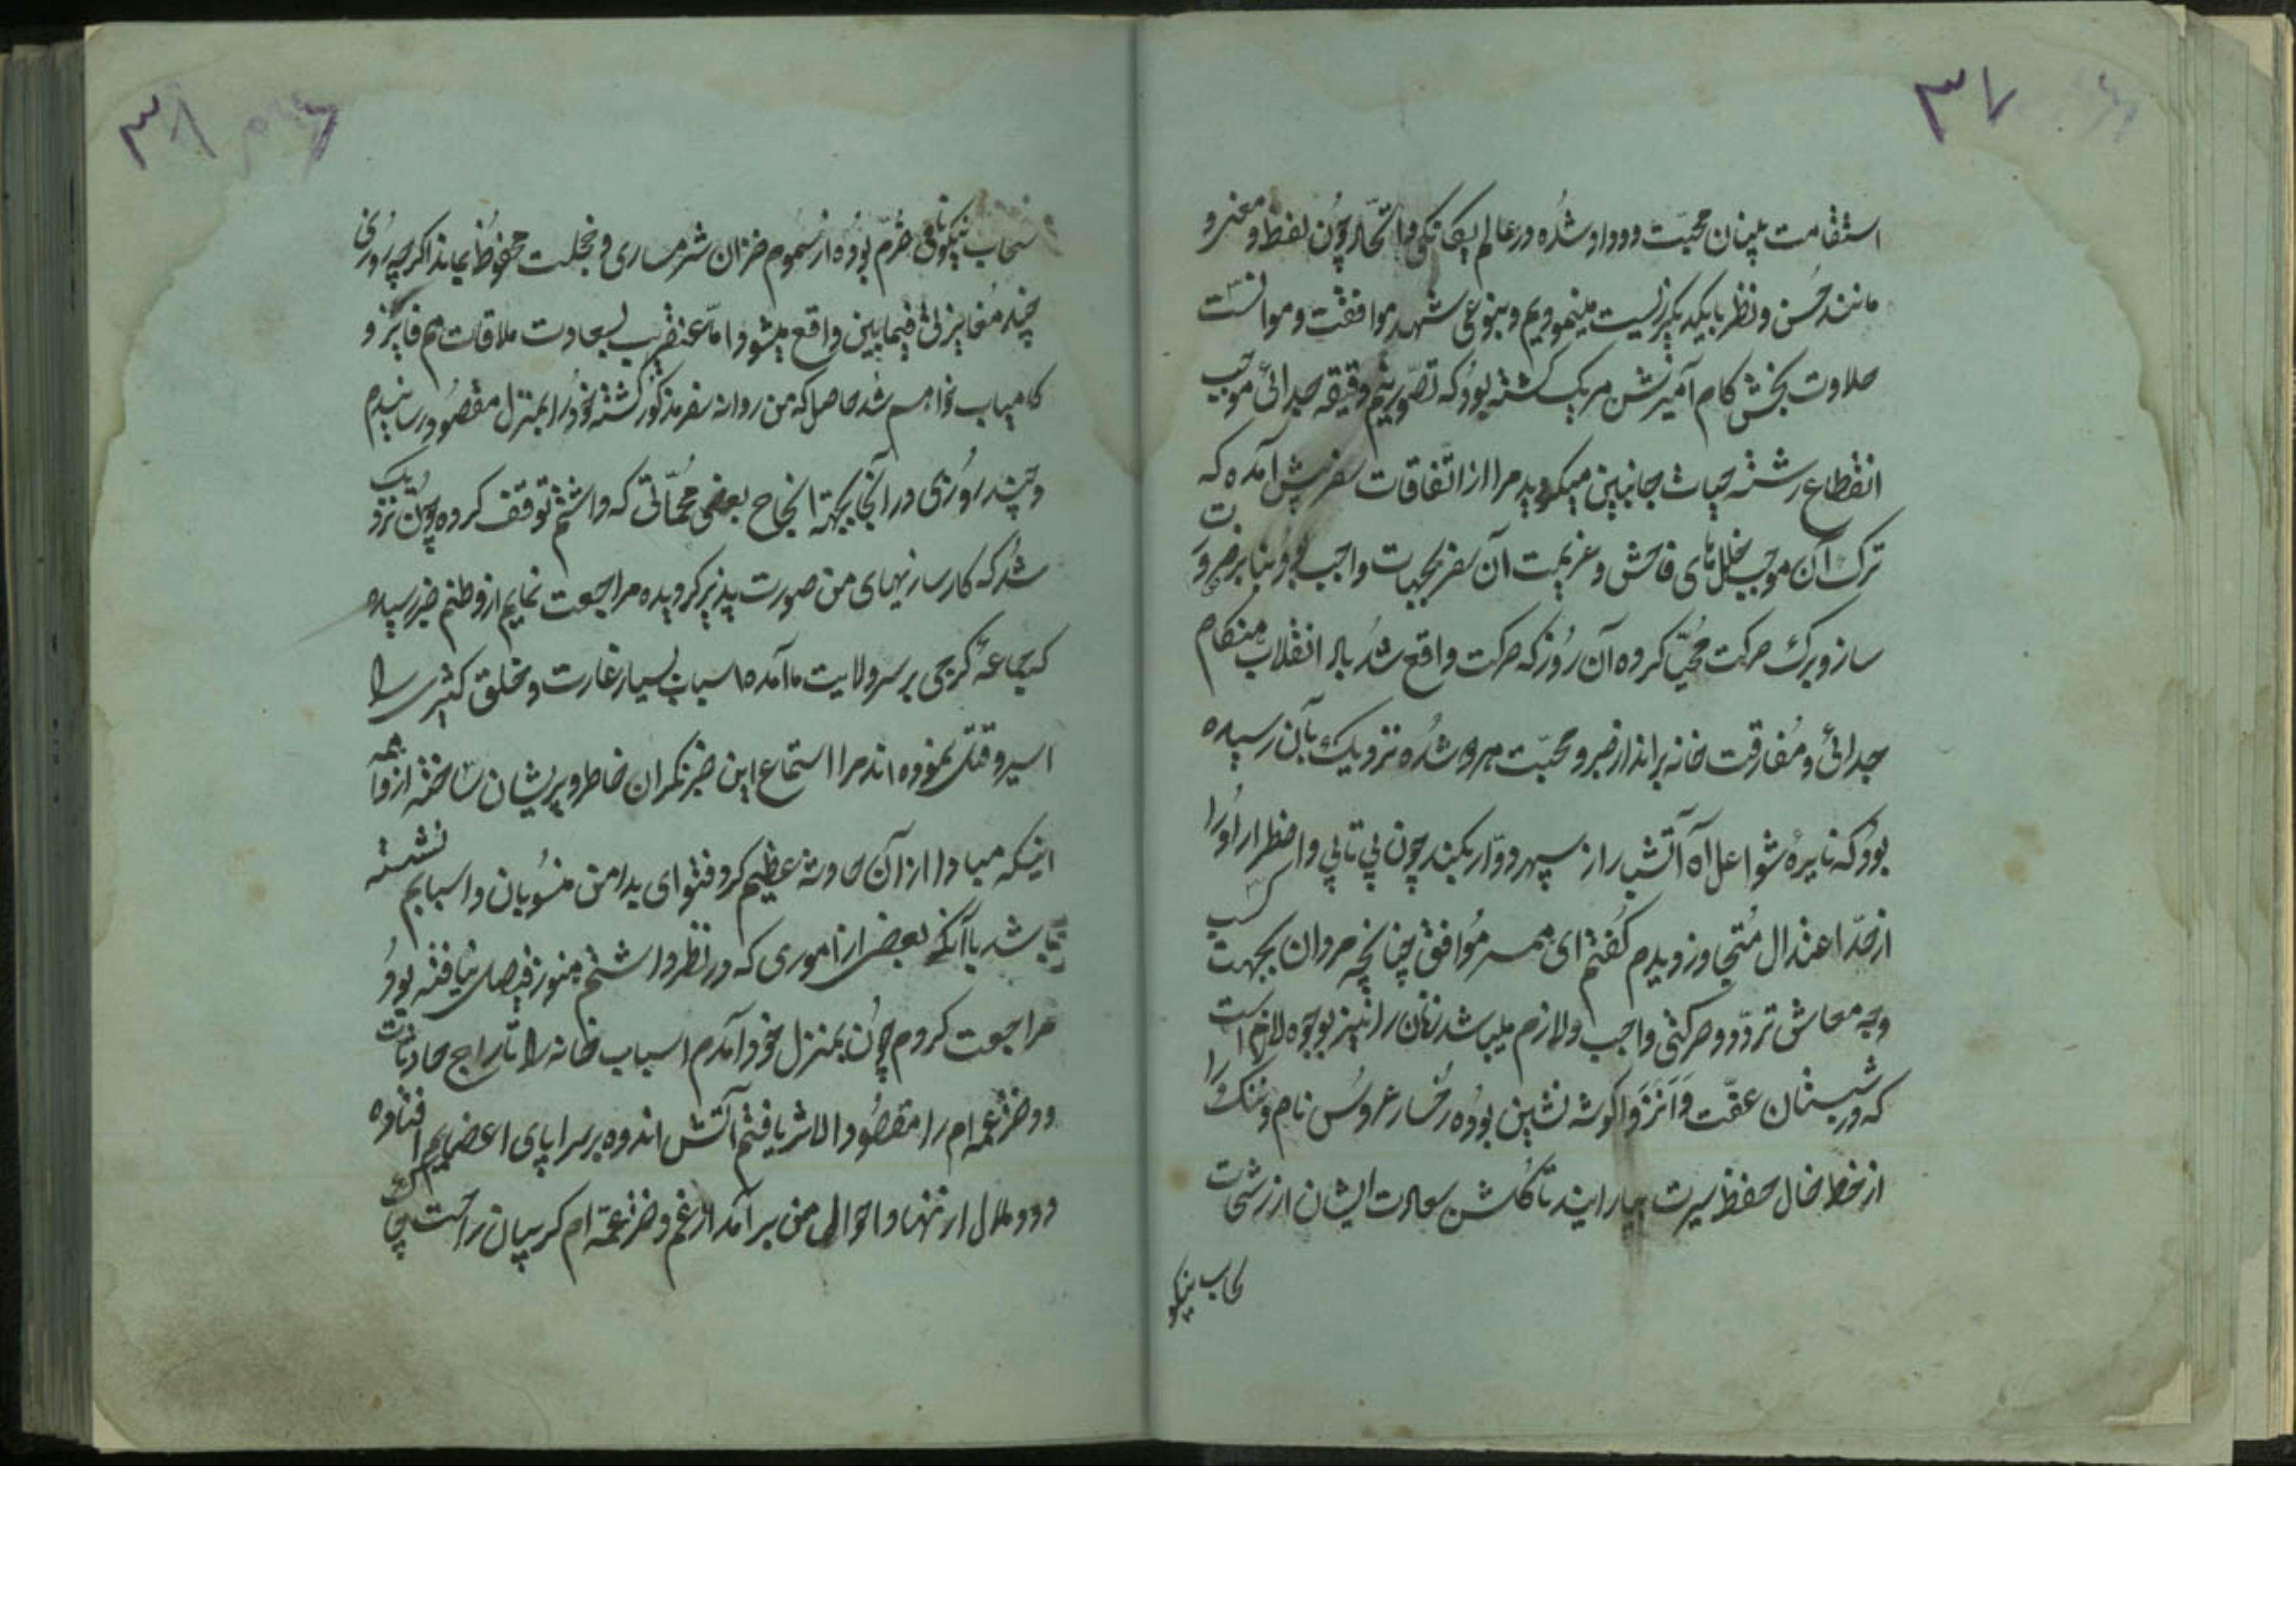 ۳۷
استقامت بنیان محبت و وداد شده در عالم یکانکی و اتحاد چون لفظ و معنی و
مانند حسن و نظر با یکدیکر زیست مینمودیم و بنوعی شهد موافقت و موانست
حلاوت بخش کام آمیزش هر یک کشته بود که تصور نیم دقیقه جدائی موجب
انقطاع رشته حیات جانبین میکردید مرا از اتفاقات سفر پیش آمده که
ترک آن موجب خللهای فاحش و عزیمت آن سفر بجهات واجب بود بنابر ضرورت
ساز و برک حرکت مهیا کرده آن روز که حرکت واقع شد باد انقلاب هنکام
جدائی و مفارقت خانه برانداز صبر و محبت هر دو شده نزدیک بآن رسیده
بود که نایره شواعل آه آتشبار از سپهر دوار بکذرد چون بی تابی و اضطرار او را
از حد اعتدال متجاوز دیدم کفتم ای همسر موافق چنانچه مردان بجهت کسب
وجه معاش تردد و حرکتی واجب و لازم میباشد زنان را نیز بوجوه لازم است
که در شبستان عفت و انزوا کوشه نشین بوده رخسار عروس نام و ننک را
از خط و خال حفظ سیرت بیارایند تا کلشن سعادت ایشان از رشحات
سحاب نیکو
۳۸
سحاب نیکونامی خرم بوده از سموم خزان شرمساری و خجلت محفوظ بماند اکرچه روزی
چند مغایرتی فیمابین واقع میشود اما عنقریب بسعادت ملاقات هم فایز و
کامیاب خواهیم شد حاصل که من روانه سفر مذکور کشته خود را بمنزل مقصود رسانیدم
و چند روزی در آنجا بجهة انجاح بعضی مهماتی که داشتم توقف کرده چون نزدیک
شد که کارسازیهای من صورت پذیر کردیده مراجعت نمایم از وطنم خبر رسیده
که جماعه کرجی بر سر ولایت ما آمده اسباب بسیار غارت و خلق کثیری را
اسیر و قتل نموده اند مرا استماع این خبر نکران خاطر و پریشان ساخته از واهمه
اینکه مبادا از آن حادثه عظیم کرد فتوای بدامن منسوبان و اسبابم نشسته
باشد با آنکه بعضی از اموری که در نظر داشتم هنوز فیصل نیافته بود
مراجعت کردم چون بمنزل خود آمدم اسباب خانه را تاراج حادثات
و دختر عمه ام را مفقود الاثر یافتم آتش اندوه بر سراپای اعضایم افتاده
دود ملال از نهاد احوال من برآمد از غم دختر عمه ام کریبان راحت چاک